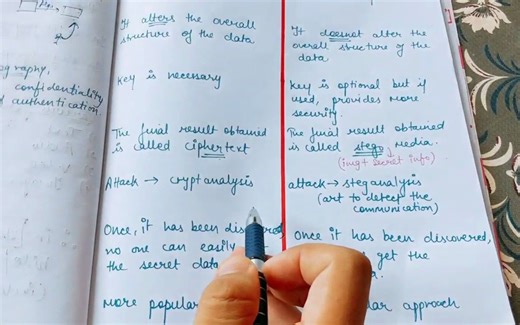 ography,
confidentiality
authentication.
It alters the overall
structure of the data
Key is necessary
The final result obtained
is called ciphertext
Attack → cryptanalysis
Once, it has been
no one can easily
the secret data
More popular
It doesnot alter the
overall structure of the
data
Key is optional but if
used, provides more
security.
The final result obtained
is called stego media.
(img + secret info)
attack → steganalysis
(art to detect the
communication)
Once it has been discovered,
get the
approach